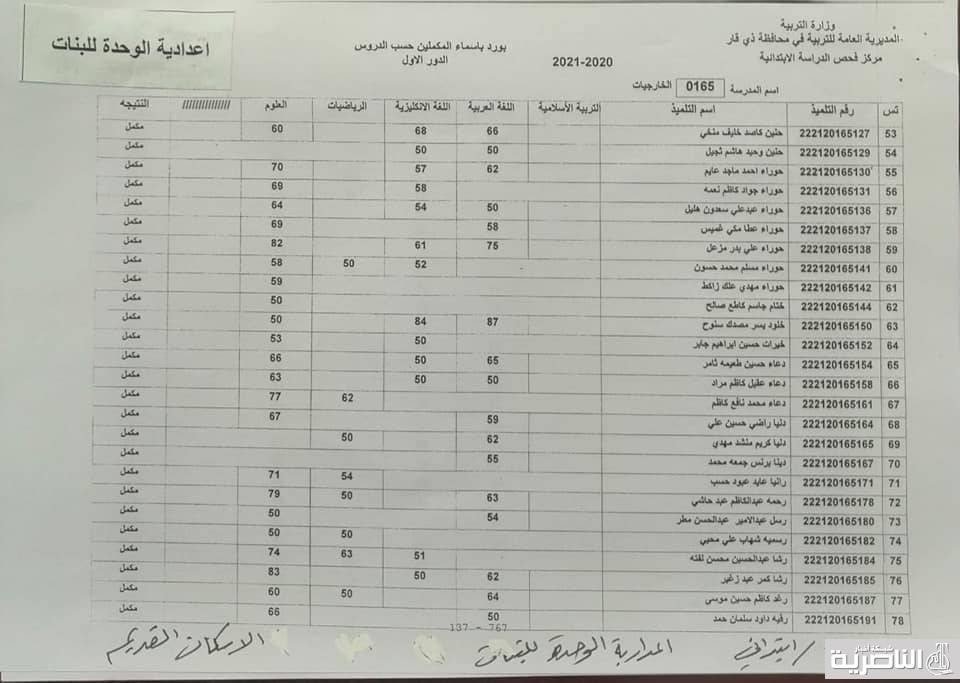 وزارة التربية
المديرية العامة للتربية في محافظة ذي قار
مركز فحص الدراسة الابتدائية
بورد باسماء المكملين حسب الدروس
الدور الاول
2021-2020
اعدادية الوحدة للبنات
اسم المدرسة 0165 الخارجيات
تس رقم التلميذ اسم التلميذ التربية الأسلامية اللغة العربية اللغة الانكليزية الرياضيات العلوم ////////////// النتيجه
53 222120165127 حنين كاصد خليف منخي 66 68 60 مكمل
54 222120165129 حنين وحيد هاشم ثجيل 50 50 مكمل
55 222120165130 حوراء احمد ماجد عايم 62 57 70 مكمل
56 222120165131 حوراء جواد كاظم نعمه 58 69 مكمل
57 222120165136 حوراء عبدعلي سعدون هليل 50 54 64 مكمل
58 222120165137 حوراء عطا مكي غميس 58 69 مكمل
59 222120165138 حوراء علي بدر مزعل 75 61 82 مكمل
60 222120165141 حوراء مسلم محمد حسون 52 50 58 مكمل
61 222120165142 حوراء مهدي علك زاكط 59 مكمل
62 222120165144 ختام جاسم كاطع صالح 50 مكمل
63 222120165150 خلود يسر مصدك سنوح 87 84 50 مكمل
64 222120165152 خيرات حسين ابراهيم جابر 50 53 مكمل
65 222120165154 دعاء حسين طعيمه ثامر 65 50 66 مكمل
66 222120165158 دعاء عقيل كاظم مراد 50 50 63 مكمل
67 222120165161 دعاء محمد نافع كاظم 62 77 مكمل
68 222120165164 دنيا راضي حسين علي 59 67 مكمل
69 222120165165 دنيا كريم منشد مهدي 62 50 مكمل
70 222120165167 دينا برنس جمعه محمد 55 مكمل
71 222120165171 رانيا عايد عبود حسب 54 71 مكمل
72 222120165178 رحمه عبدالكاظم عبد حاشي 63 50 79 مكمل
73 222120165180 رسل عبدالامير عبدالحسن مطر 54 50 مكمل
74 222120165182 رسميه شهاب علي محيي 50 50 مكمل
75 222120165184 رشا عبدالحسين محسن لفته 51 63 74 مكمل
76 222120165185 رشا كمر عبد زغير 62 50 83 مكمل
77 222120165187 رغد كاظم حسين موسى 64 50 60 مكمل
78 222120165191 رقيه داود سلمان حمد 50 66 مكمل
137 - 767
/ ابتدائي اعدادية الوحدة للبنات الاسكان القديم
شبكة أخبار
الناصرية